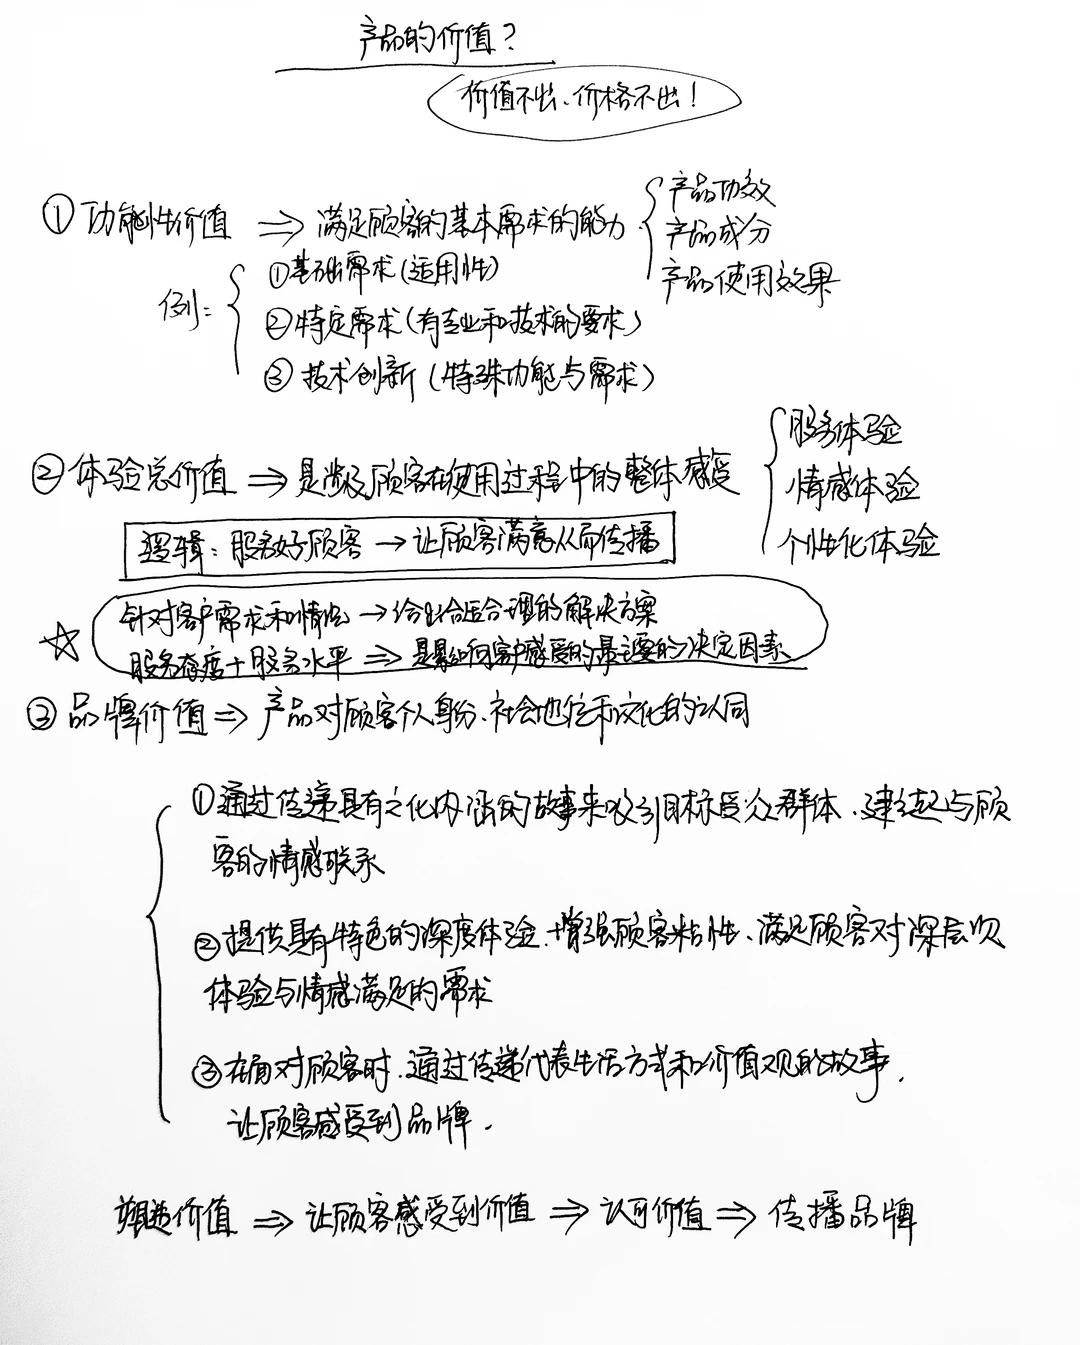 产品的价值？
价值不出、价格不出！
①功能性价值 ⇒ 满足顾客的基本需求的能力
产品功效
产品成分
产品使用效果
例：
①基础需求(适用性)
②特定需求(有专业和技术的要求)
③技术创新(特殊功能与需求)
②体验总价值 ⇒ 是涉及顾客在使用过程中的整体感受
服务体验
情感体验
个性化体验
逻辑：服务好顾客 → 让顾客满意从而传播
针对客户需求和情况 → 给出合理的解决方案
服务态度+服务水平 ⇒ 是影响客户感受的最主要的决定因素
③品牌价值 ⇒ 产品对顾客个人身份、社会地位和文化的认同
①通过传递具有文化内涵的故事来吸引目标受众群体、建立起与顾
客的情感联系
②提供具有特色的深度体验、增强顾客粘性、满足顾客对深层次
体验与情感满足的需求
③在面对顾客时、通过传递代表生活方式和价值观的故事、
让顾客感受到品牌.
塑造价值 ⇒ 让顾客感受到价值 ⇒ 认可价值 ⇒ 传播品牌